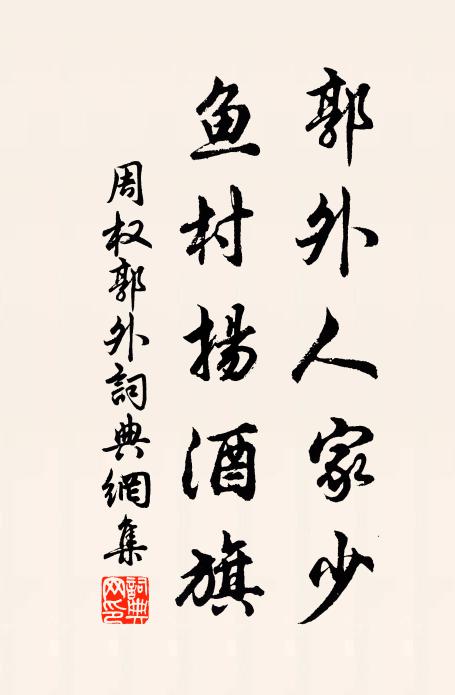 郭外人家少
鱼村揚酒旗
周权郭外詞典網集
詞典网印